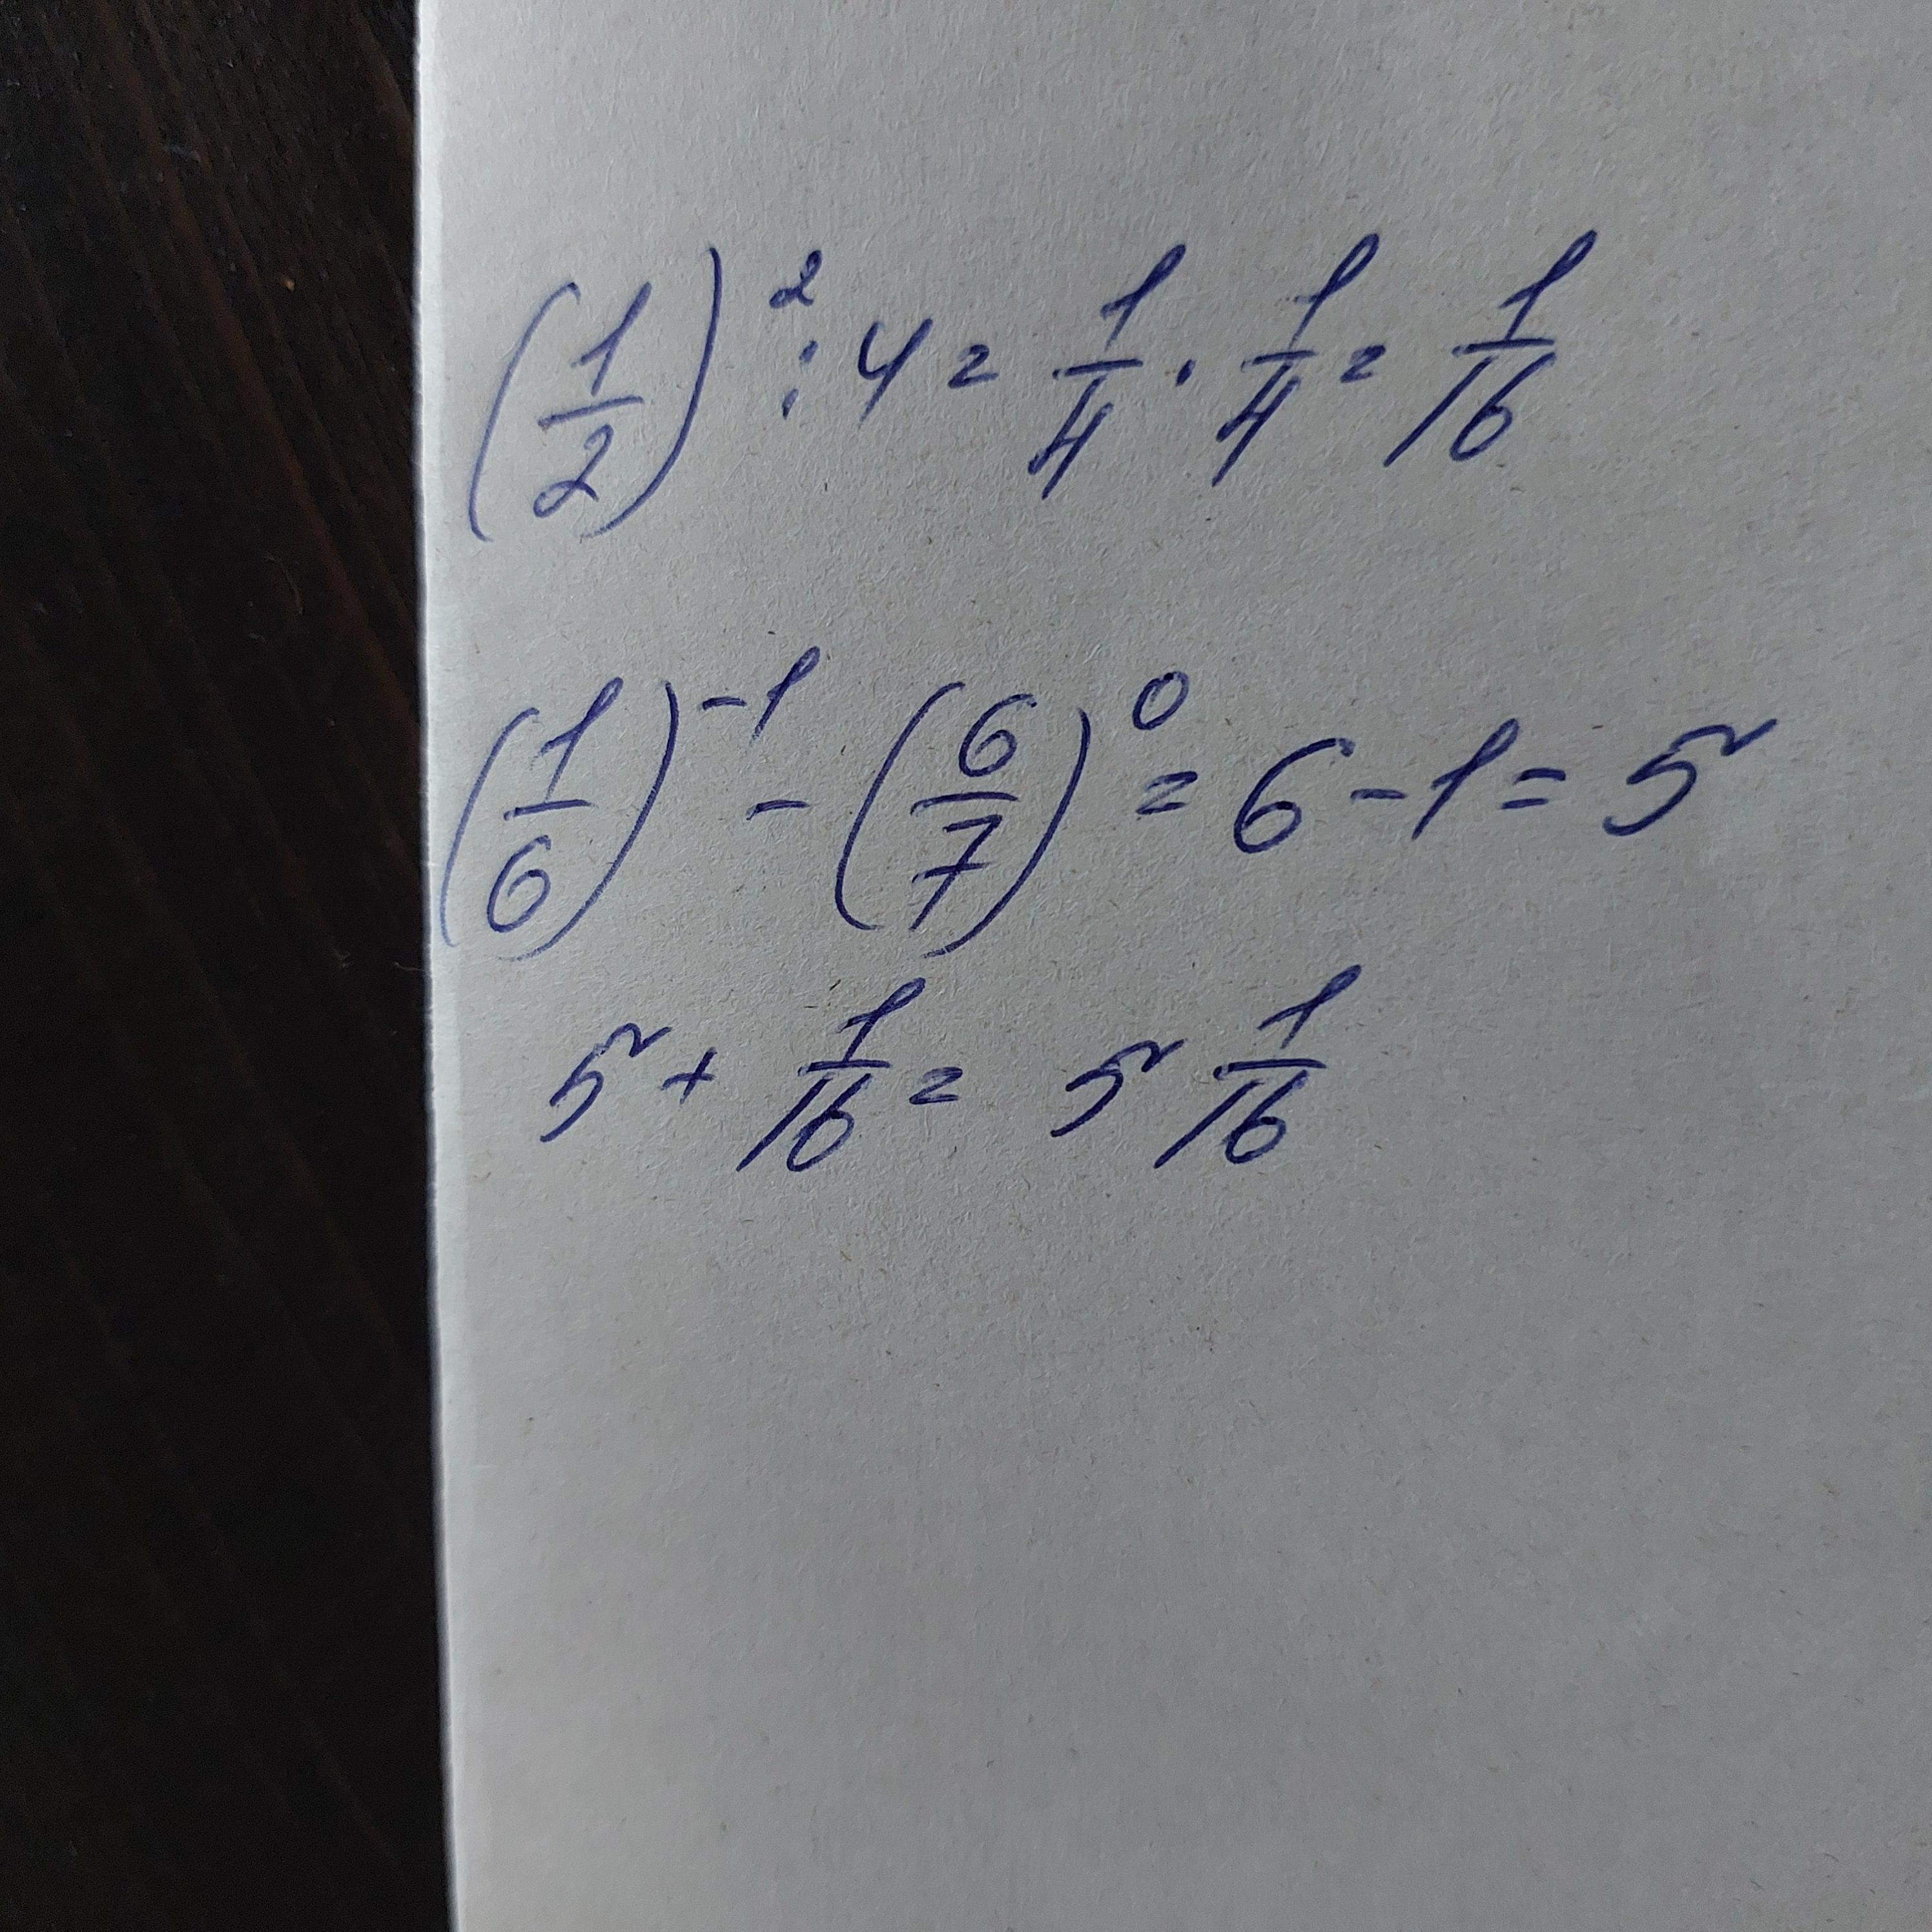 (1/2)² : 4 = 1/4 · 1/4 = 1/16
(1/6)⁻¹ - (6/7)⁰ = 6 - 1 = 5
5 + 1/16 = 5 1/16